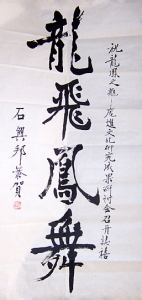 祝龍鳳之鄉—虎遺文化研究成果研討會召開誌禧
龍飛鳳舞
石興邦恭賀